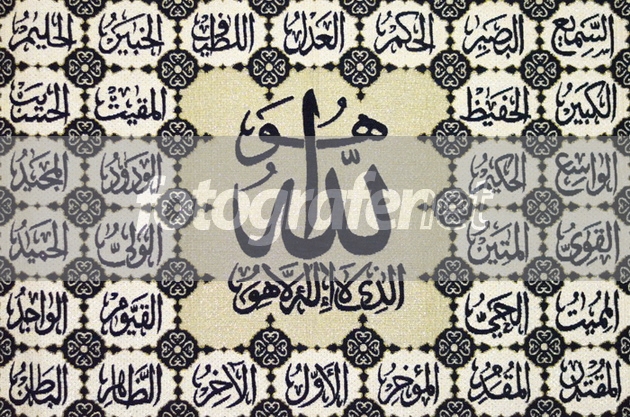 السَّمِيعُ البَصِيرُ الحَكَمُ العَدْلُ اللَّطِيفُ الخَبِيرُ الحَلِيمُ
الكَبِيرُ الحَفِيظُ المُقِيتُ الحَسِيبُ
هُوَ
الوَاسِعُ الحَكِيمُ الوَدُودُ المَجِيدُ
الله
fotografer.net
القَوِيُّ المَتِينُ الوَلِيُّ الحَمِيدُ
الَّذِي لَا إِلَهَ إِلَّا هُوَ
المُمِيتُ الحَيُّ القَيُّومُ الوَاحِدُ
المُقْتَدِرُ المُقَدِّمُ المُؤَخِّرُ الأَوَّلُ الآخِرُ الظَّاهِرُ البَاطِنُ